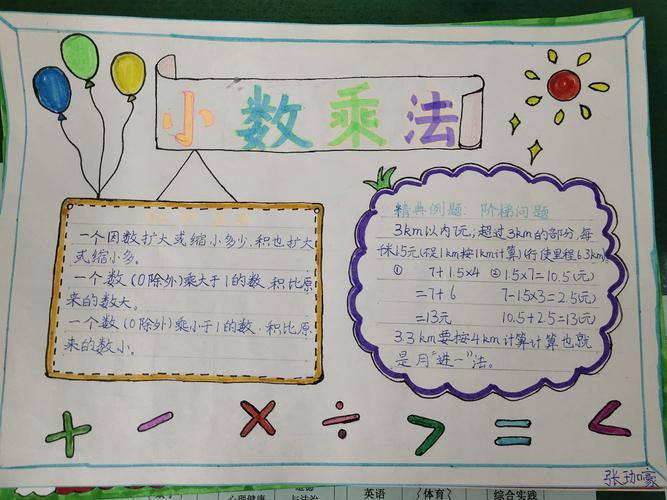 小数乘法
一个因数扩大或缩小多少,积也扩大
或缩小多。
一个数(0除外)乘大于1的数,积比原
来的数大。
一个数(0除外)乘小于1的数,积比原
来的数小。
精典例题:阶梯问题
3km以内7元;超过3km的部分,每
千米1.5元(不足1km按1km计算)行使里程6.3km
① 7+1.5×4 ② 1.5×7=10.5(元)
=7+6 7-1.5×3=2.5(元)
=13元 10.5+2.5=13(元)
3.3km要按4km计算计算也就
是月“进一”法。
+ - × ÷ > = <
张珈豪
心理健康 道德与法治 英语 (体育) 综合实践